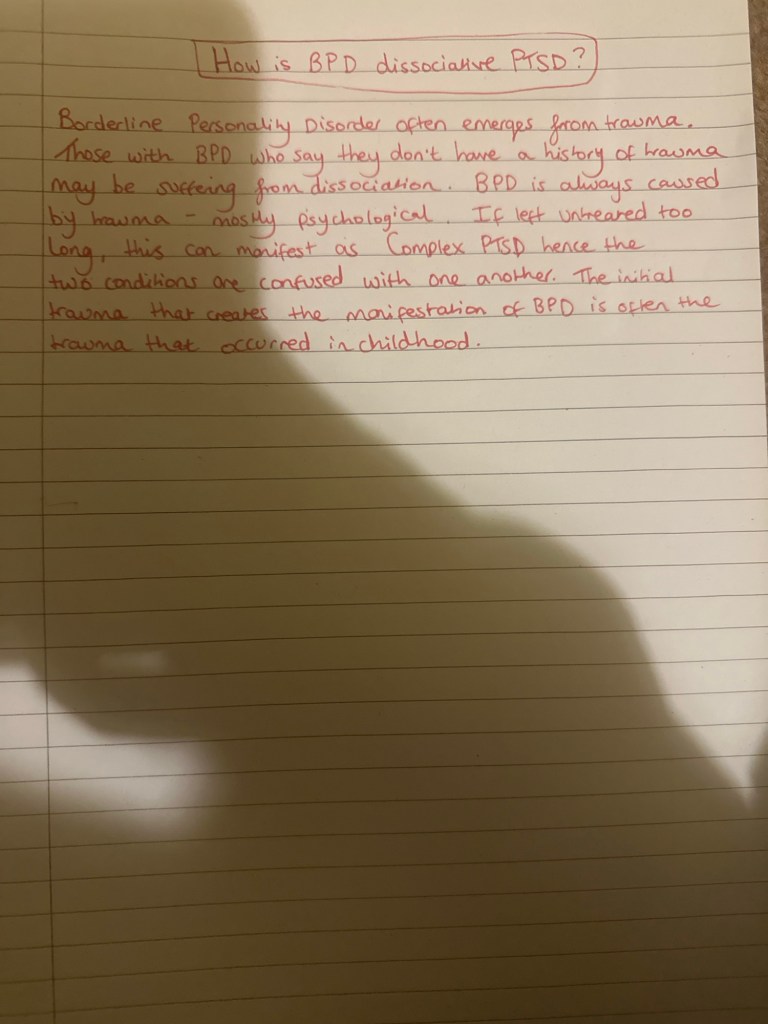 How is BPD dissociative PTSD?
Borderline Personality Disorder often emerges from trauma.
Those with BPD who say they don't have a history of trauma
may be suffering from dissociation. BPD is always caused
by trauma - mostly psychological. If left untreated too
long, this can manifest as Complex PTSD hence the
two conditions are confused with one another. The initial
trauma that creates the manifestation of BPD is often the
trauma that occurred in childhood.